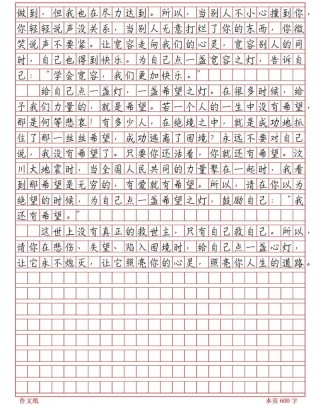 做到，但我也在尽力达到。所以，当别人不小心撞到你，
你轻轻说声没关系，当别人无意打烂了你的东西，你微
笑说声不要紧。让宽容走向我们的心灵，宽容别人的同
时，自己也得到快乐。为自己点一盏宽容之灯，告诉自
己：“学会宽容，我们更加快乐。”
给自己点一盏灯，一盏希望之灯。在很多时候，给
予我们力量的，就是希望。若一个人的一生中没有希望，
那是何等悲哀！有多少人，在绝境之中，就是成功地抓
住了那一丝丝希望，成功逃离了困境？永远不要对自己
说，我没有希望了。只要你还活着，你就还有希望。汶
川大地震时，当全国人民共同的力量聚在一起时，我看
到那希望是无穷的，有爱就有希望。所以，请在你以为
绝望的时候，为自己点一盏希望之灯，鼓励自己：“我
还有希望。”
这世上没有真正的救世主，只有自己救自己。所以，
请你在悲伤、失望、陷入困境时，给自己点一盏心灯，
让它永不熄灭，让它照亮你的心灵，照亮你人生的道路。
作文纸
本页600字